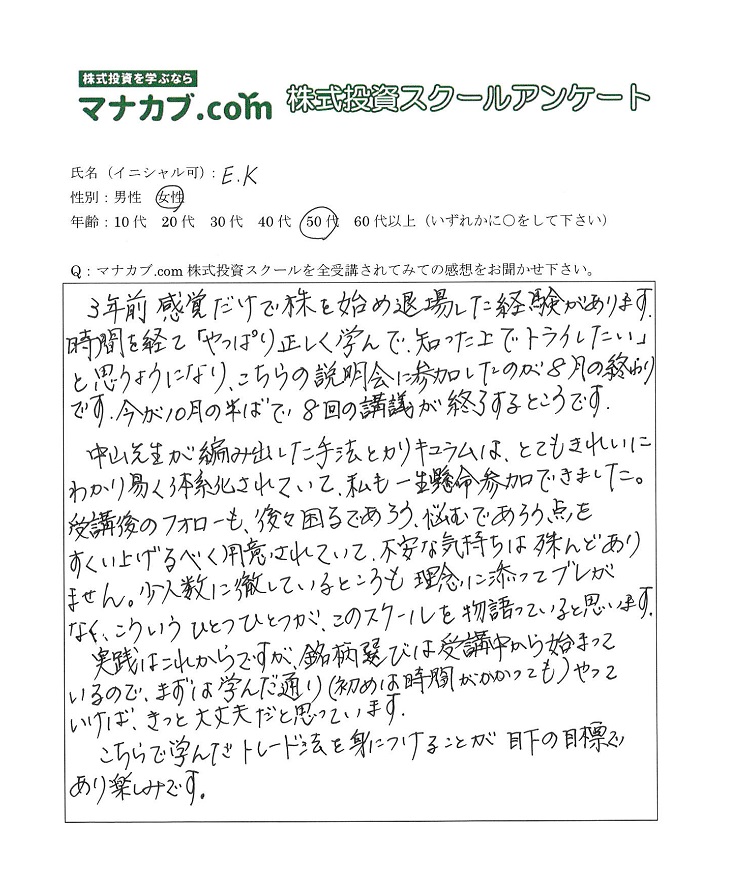 株式投資を学ぶなら
マナカブ.com 株式投資スクールアンケート
氏名（イニシャル可）：E.K
性別：男性　女性
年齢：10代　20代　30代　40代　50代　60代以上（いずれかに○をして下さい）
Q：マナカブ.com 株式投資スクールを全受講されてみての感想をお聞かせ下さい。
3年前 感覚だけで株を始め退場した経験があります.
時間を経て「やっぱり正しく学んで、知った上でトライしたい」
と思うようになり、こちらの説明会に参加したのが8月の終わり
です.今が10月の半ばで、8回の講議が終了するところです.
中山先生が編み出した手法とカリキュラムは、とてもきれいに
わかり易く体系化されていて、私も一生懸命参加できました。
受講後のフォローも、後々困るであろう、悩むであろう点を
すくい上げるべく用意されていて、不安な気持ちは殆んどあり
ません。少人数に徹しているところも 理念に添ってブレが
なく、こういうひとつひとつが、このスクールを物語っていると思います.
実践はこれからですが、銘柄選びは受講中から始まって
いるので、まずは学んだ通り(初めは時間がかかっても)やって
いけば、きっと大丈夫だと思っています.
こちらで学んだトレード法を身につけることが 目下の目標で
あり楽しみです。